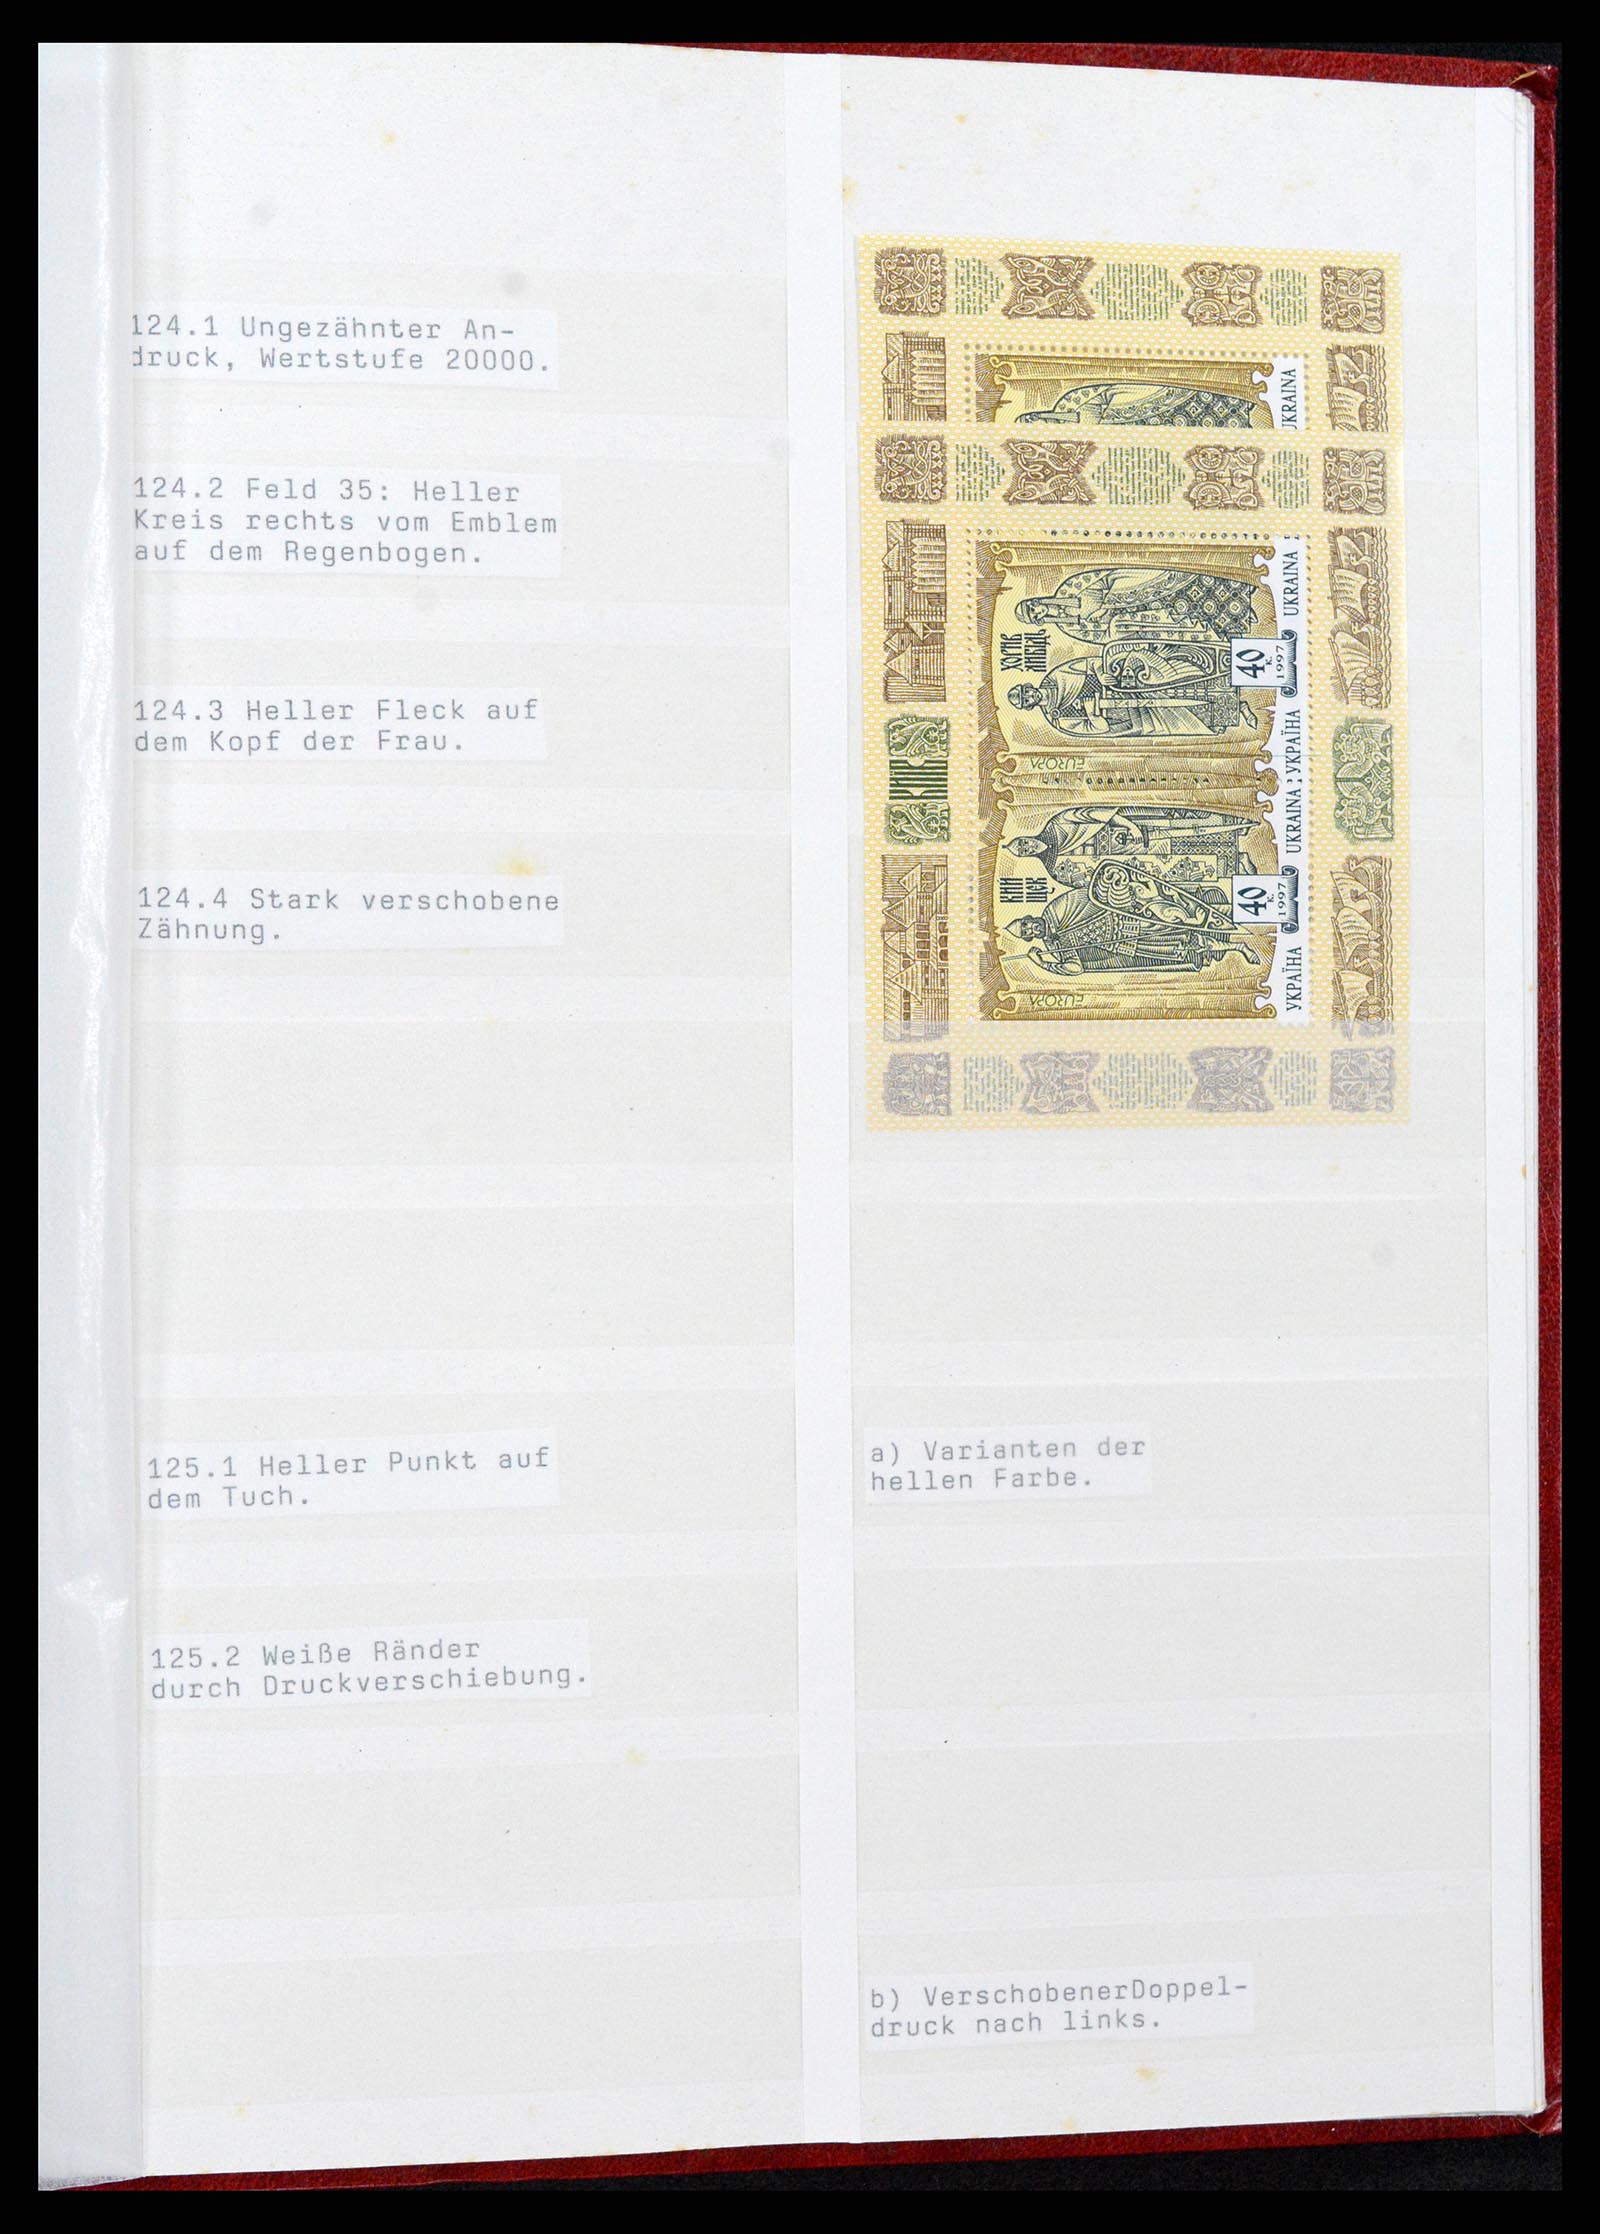 124.1 Ungezähnter An-
druck, Wertstufe 20000.
124.2 Feld 35: Heller
Kreis rechts vom Emblem
auf dem Regenbogen.
124.3 Heller Fleck auf
dem Kopf der Frau.
124.4 Stark verschobene
Zähnung.
125.1 Heller Punkt auf
dem Tuch.
125.2 Weiße Ränder
durch Druckverschiebung.
UKRAINA
ХОРИВ
ЛИБІДЬ
40 к.
1997
УКРАЇНА
UKRAINA
EUROPA
КИЙ
ЩЕК
40 к.
1997
УКРАЇНА
UKRAINA
EUROPA
КИЇВ
a) Varianten der
hellen Farbe.
b) VerschobenerDoppel-
druck nach links.